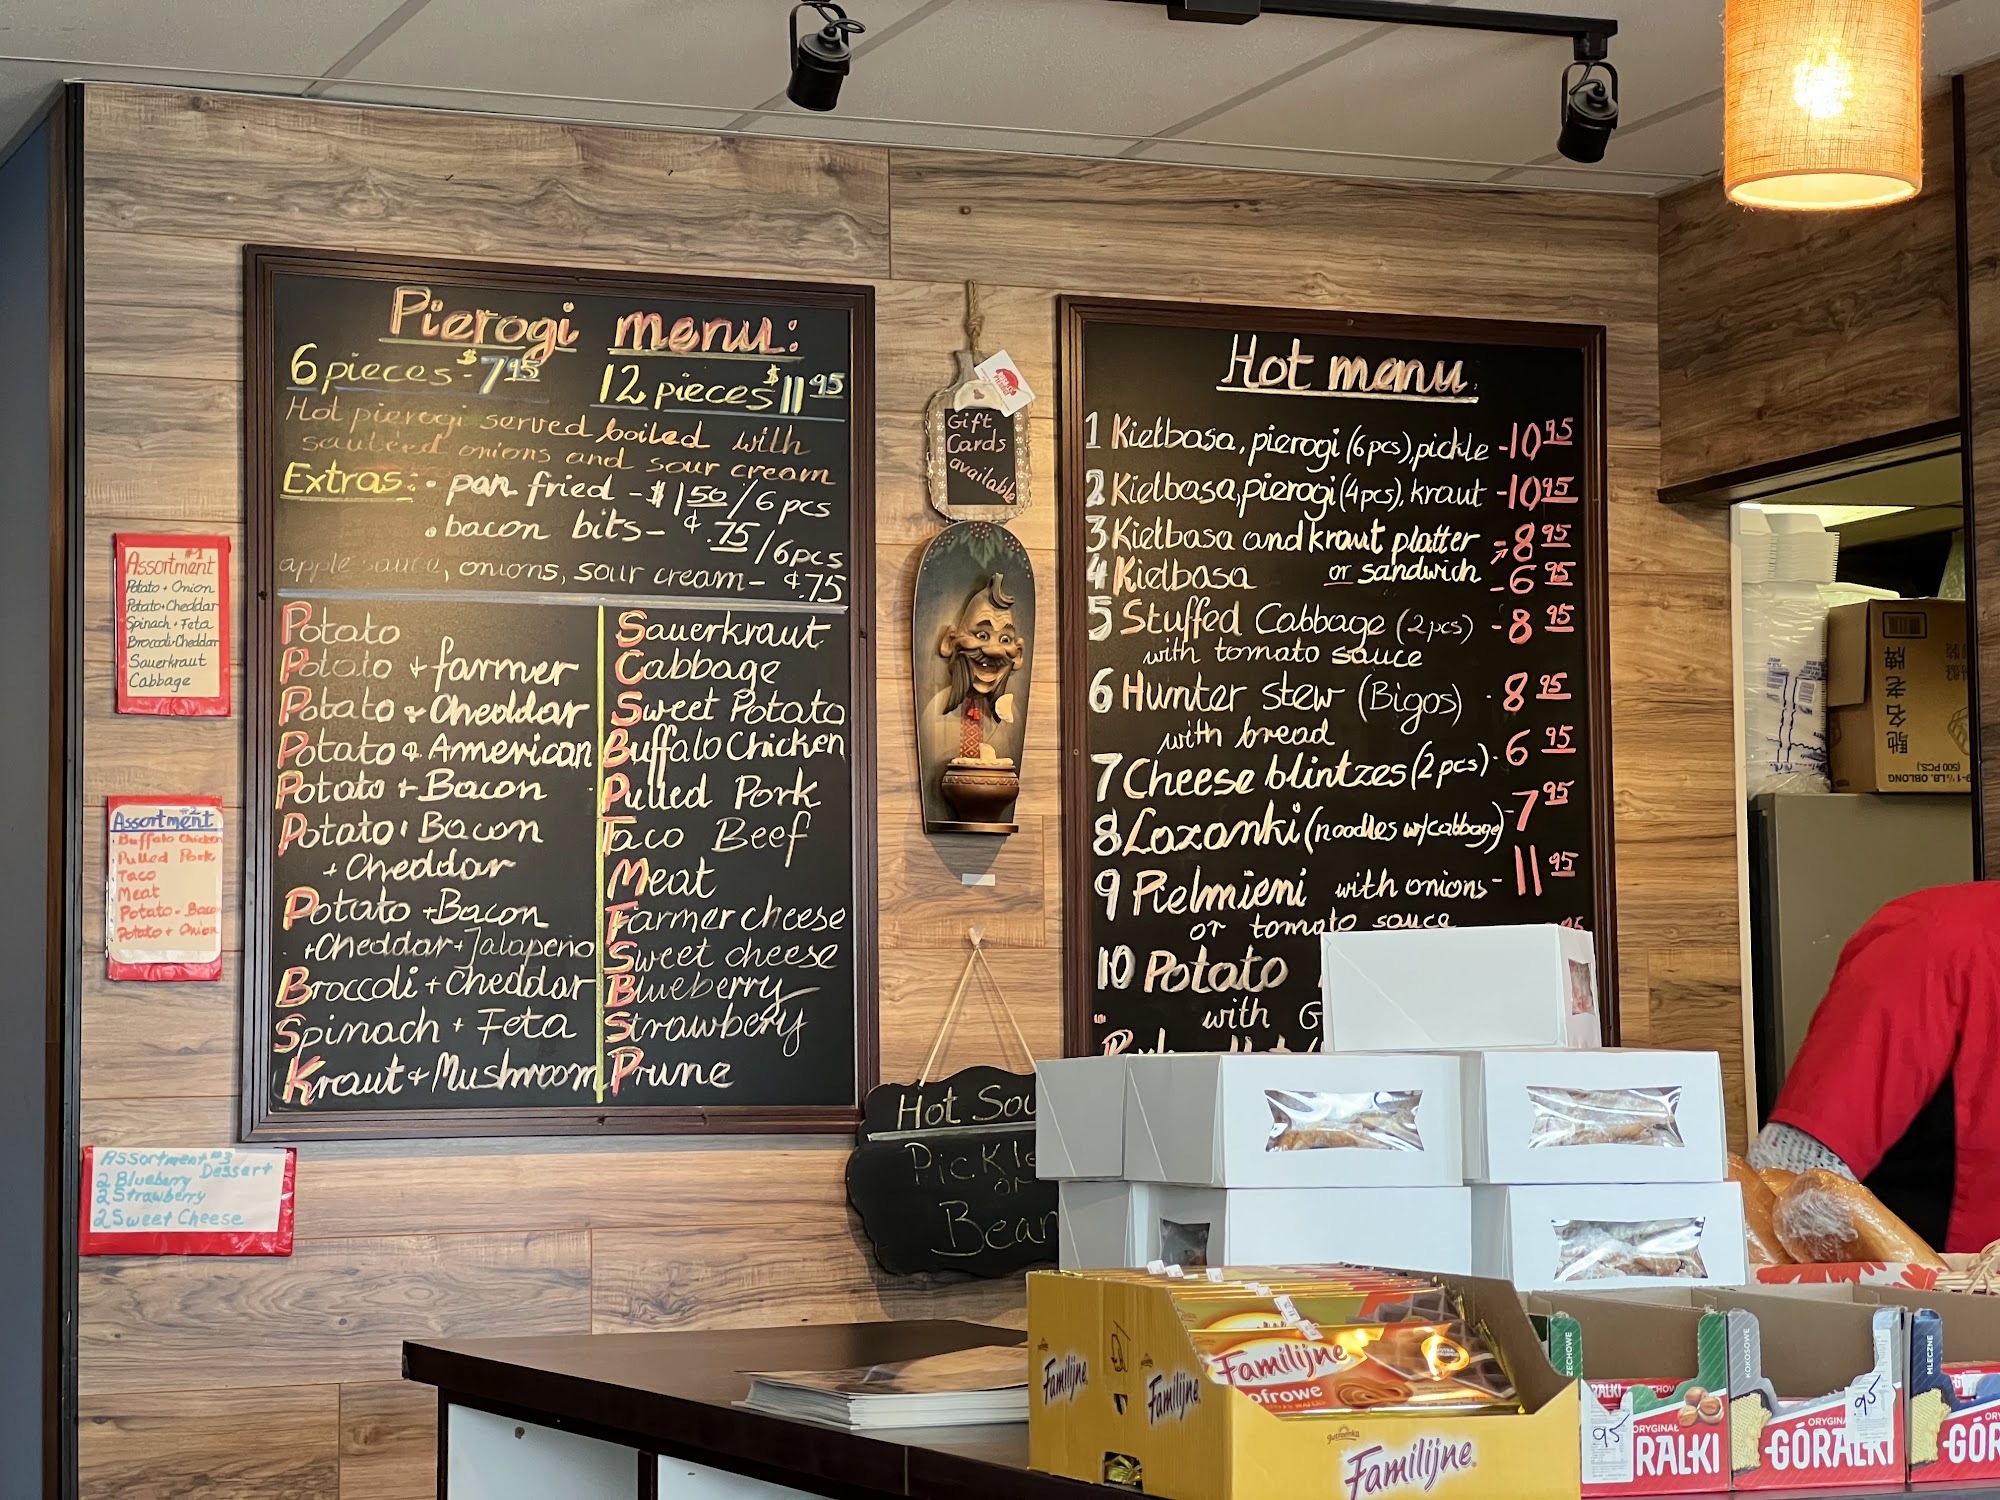 Pierogi menu:
6 pieces - $7.95 12 pieces $11.95
Hot pierogi served boiled with
sauteed onions and sour cream
Extras: • pan fried - $1.50/6 pcs
• bacon bits - ¢.75/6pcs
apple sauce, onions, sour cream - ¢.75
Potato
Potato + farmer
Potato & Cheddar
Potato & American
Potato + Bacon
Potato + Bacon
+ Cheddar
Potato + Bacon
+ Cheddar + Jalapeño
Broccoli + Cheddar
Spinach + Feta
Kraut + Mushroom
Sauerkraut
Cabbage
Sweet Potato
Buffalo Chicken
Pulled Pork
Taco Beef
Meat
Farmer cheese
Sweet cheese
Blueberry
Strawbery
Prune
Assortment #1
Potato + Onion
Potato + Cheddar
Spinach + Feta
Broccoli + Cheddar
Sauerkraut
Cabbage
#2
Assortment
Buffalo Chicken
Pulled Pork
Taco
Meat
Potato - Bacon
Potato + Onion
Assortment #3
Dessert
2 Blueberry
2 Strawberry
2 Sweet Cheese
Gift
Cards
available
Hot menu
1 Kielbasa, pierogi (6 pcs), pickle - 10.95
2 Kielbasa, pierogi (4 pcs), kraut - 10.95
3 Kielbasa and kraut platter - 8.95
4 Kielbasa or sandwich - 6.95
5 Stuffed Cabbage (2 pcs) - 8.95
with tomato sauce
6 Hunter stew (Bigos) - 8.95
with bread
7 Cheese blintzes (2 pcs) - 6.95
8 Lazanki (noodles w/cabbage) - 7.95
9 Pielmieni with onions - 11.95
or tomato sauce
10 Potato
with G
Hot Sou
Pickle
or
Bean
(500 PC.)
馳名老牌
Familijne
Familijne
Familijne
ofrowe
Familijne
.95
ORYGINAŁ
RALKI
KOKOSOWE
.95
GÓRALKI
MLECZNE
GÓR